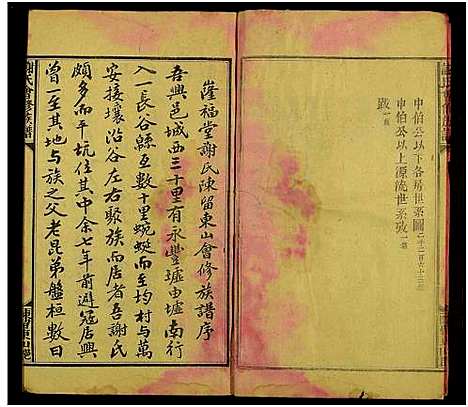 申伯公以下各房世系圖二千二百六十三
申伯公以上源流世系攷一
跋一
謝氏會修族譜
隆福堂謝氏陳留東山會修族譜序
吾興邑城西三十里有永豐墟由墟南行
入一長谷縣亙數十里蜿蜒而至均村與萬
安接壤沿谷左右聚族而居者吾謝氏
頗多而平坑住其中余七年前避寇居興
曾一至其地與族之父老昆弟盤桓數日